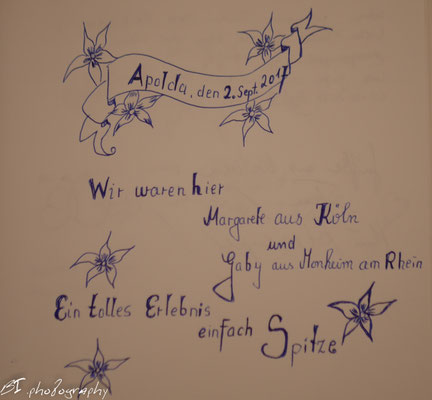 Apolda, den 2. Sept. 2017
Wir waren hier
Margarete aus Köln
und
Gaby aus Monheim am Rhein
Ein tolles Erlebnis
einfach Spitze
BI photography